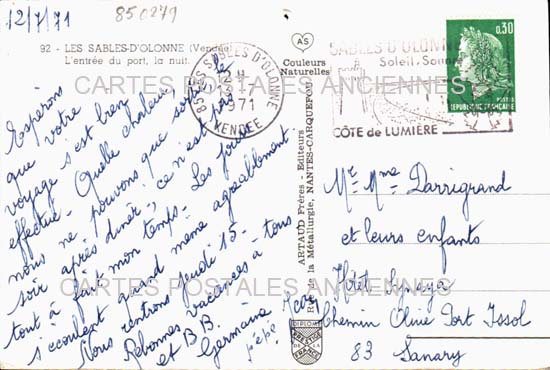 12/7/71
850279
92 - LES SABLES-D'OLONNE (Vendée)
L'entrée du port, la nuit.
AS
Couleurs
Naturelles
85 LES SABLES D'OLONNE
1971
VENDEE
SABLES D'OLONNE
à Soleil
CÔTE de LUMIÈRE
0,30
POSTES
REPUBLIQUE FRANÇAISE
CARTES POSTALES ANCIENNES
Espérons
que votre
voyage s'est bien
effectué - Quelle chaleur,
nous ne pouvons que sortir le
soir après dîner, ce n'est pas
tout à fait mon temps - Les jours
s'écoulent quand même agréablement.
Nous rentrons jeudi 15 -
Rebonnes vacances à tous
et B.B.
Germaine
ARTAUD Frères - Editeurs
Rue de la Métallurgie, NANTES-CARQUEFOU
DIPLOME
PRESTIGE
DE LA
FRANCE
CARTES POSTALES ANCIENNES
Mr. Mme Darrigrand
et leurs enfants
Hôtel
Chemin Olive Port Issol
83 Sanary